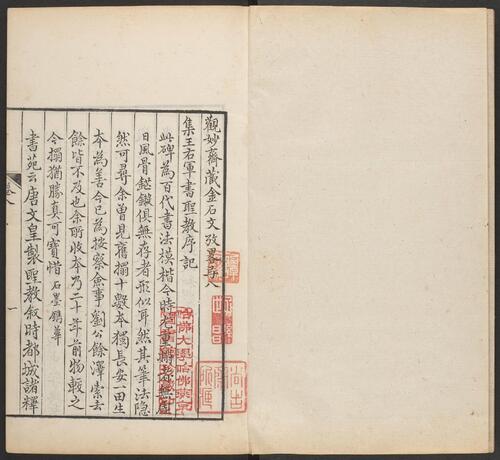 觀妙齋藏金石文攷畧卷八
集王右軍書聖教序記
此碑為百代書法模楷今時
日風骨鋩鎩俱無存者形似耳然其筆法隱
然可尋余曾見舊搨十數本獨長安一田生
本為善今已為按察僉事劉公餘澤索去
餘皆不及也余所收本乃二十年前物較之
今搨猶勝真可寶惜石墨鐫華
書苑云唐文皇製聖教敘時都城諸釋
卷八
一
哈佛大學哈佛燕京